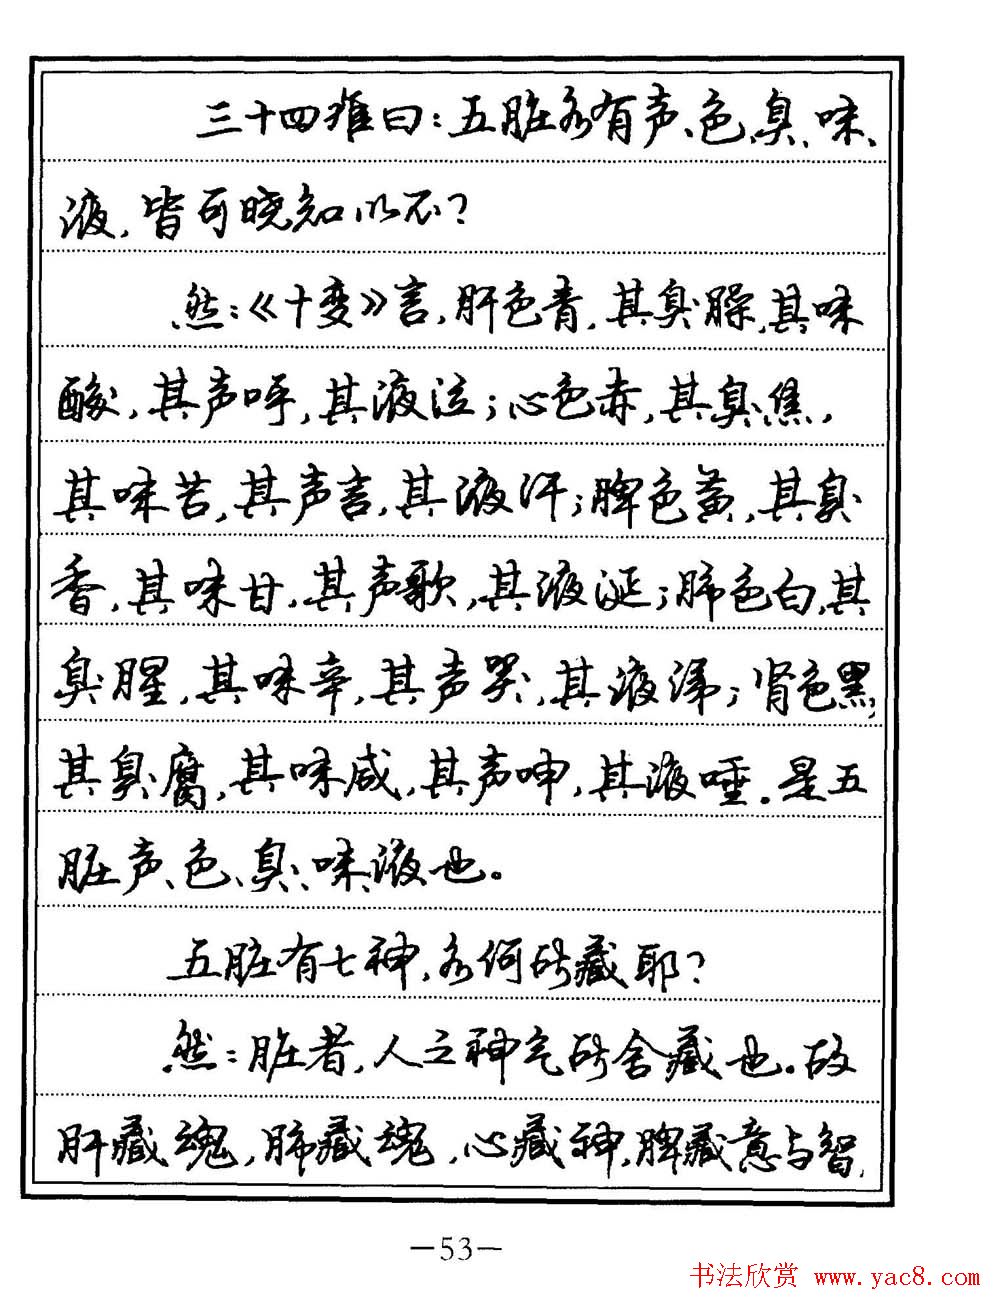 三十四难曰：五脏各有声、色、臭、味、
液，皆可晓知以不？
然：《十变》言，肝色青，其臭臊，其味
酸，其声呼，其液泣；心色赤，其臭焦，
其味苦，其声言，其液汗；脾色黄，其臭
香，其味甘，其声歌，其液涎；肺色白，其
臭腥，其味辛，其声哭，其液涕；肾色黑，
其臭腐，其味咸，其声呻，其液唾。是五
脏声、色、臭、味、液也。
五脏有七神，各何所藏耶？
然：脏者，人之神气所舍藏也。故
肝藏魂，肺藏魄，心藏神，脾藏意与智，
—53—
书法欣赏 www.yac8.com